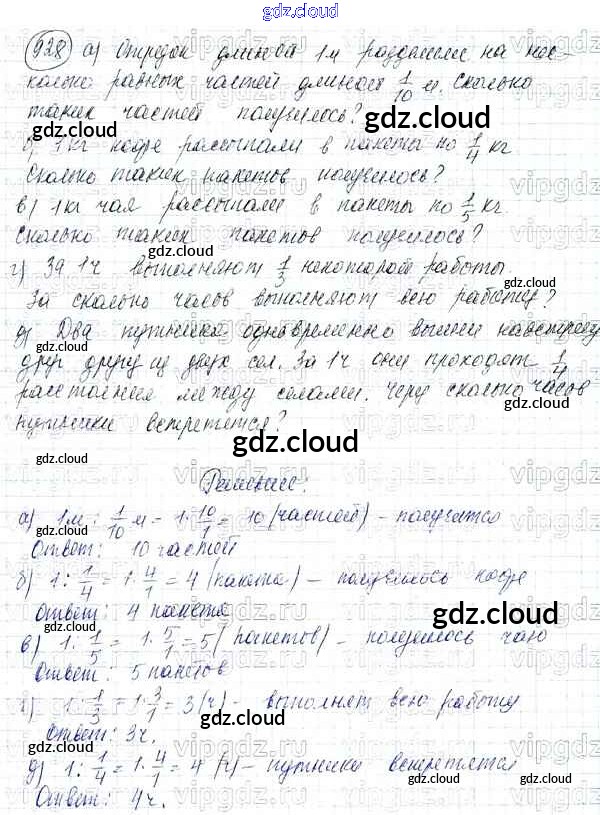 gdz.cloud
928 а) Отрезок длиной 1м разделили на нес-
колько равных частей длиной 1/10 м. Сколько
таких частей получилось?
б) 1 кг кофе рассыпали в пакеты по 1/4 кг
Сколько таких пакетов получилось?
в) 1 кг чая рассыпали в пакеты по 1/5 кг.
Сколько таких пакетов получилось?
г) За 1ч выполняют 1/3 некоторой работы.
За сколько часов выполняют всю работу?
д) Два путника одновременно вышли навстречу
друг другу из двух сел. За 1ч они проходят 1/4
расстояния между селами. Через сколько часов
путники встретятся?
Решение:
а) 1м : 1/10 м = 1 · 10/1 = 10 (частей) – получится
Ответ: 10 частей
б) 1 : 1/4 = 1 · 4/1 = 4 (пакета) – получилось кофе
Ответ: 4 пакета
в) 1 : 1/5 = 1 · 5/1 = 5 (пакетов) – получилось чаю
Ответ: 5 пакетов
г) 1 : 1/3 = 1 · 3/1 = 3 (ч) – выполнят всю работу
Ответ: 3ч.
д) 1 : 1/4 = 1 · 4/1 = 4 (ч) – путники встретятся
Ответ: 4ч.